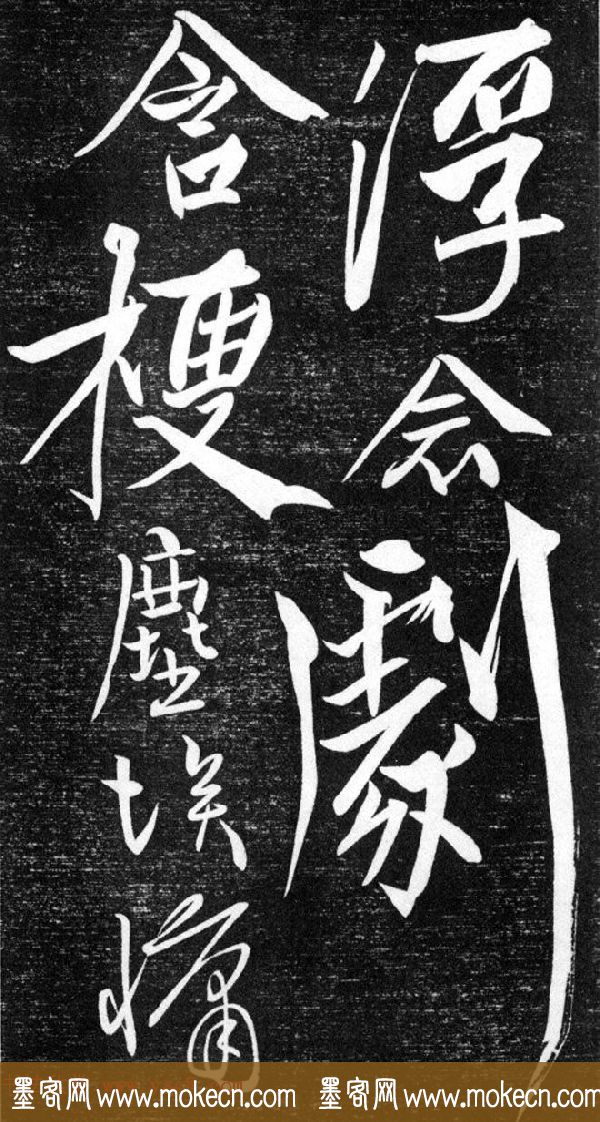 浮念劇
含梗塵埃痛
墨客网 www.mokecn.com 墨客网 www.mokecn.com